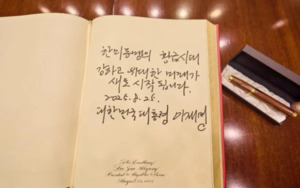 한미동맹의 황금시대
강하고 위대한 미래가
새로 시작됩니다.
2025. 8. 25.
대한민국 대통령 이재명
His Excellency
Lee Jae Myung
President of the Republic of Korea
August 25, 2025